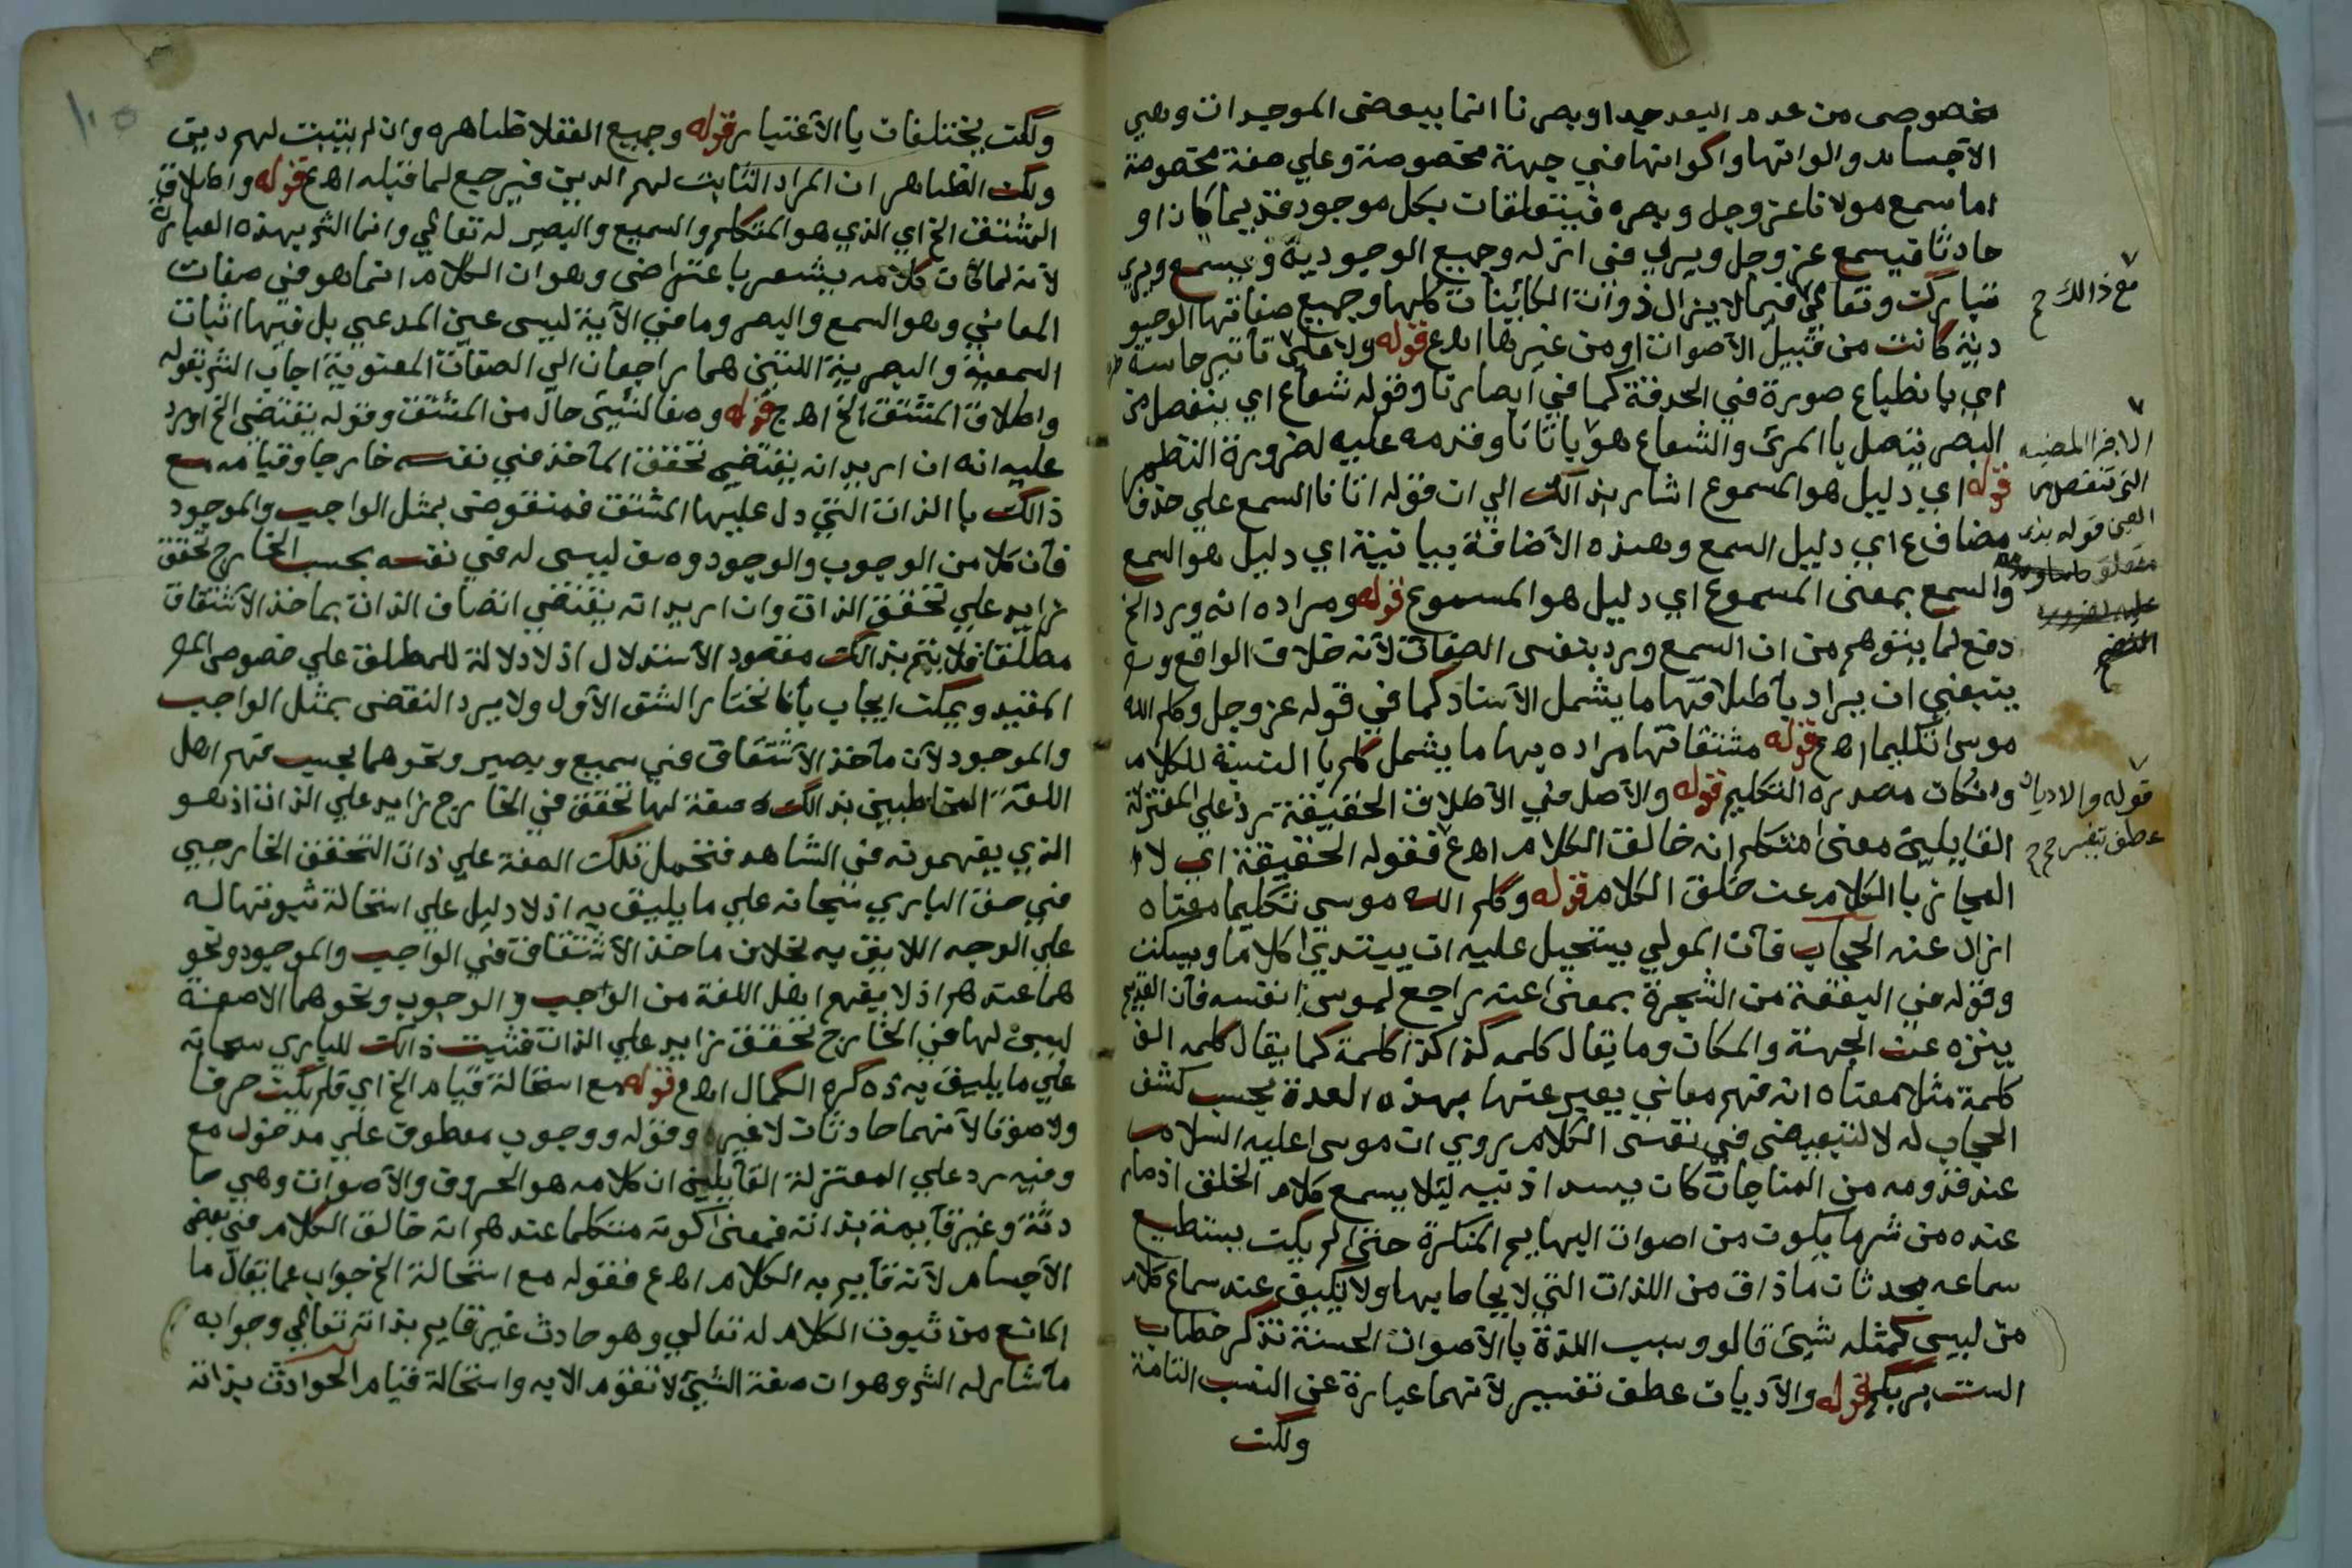 مخصوصى من عدم البعد جدا وبصرنا انما ببعض الموجودات وهي
الاجساد والوانها واكوانها في جهة مخصوصة وعلى صفة مخصوصة
اما سمع مولانا عز وجل وبصره فيتعلقات بكل موجود قديما كان او
حادثا فيسمع عز وجل ويرى في ازله وجميع الوجودية ويسمع ويرى
تبارك وتعالى فيما لا يزال ذوات الكائينات كلها وجميع صفاتها الوجو
دية كانت من قبيل الاصوات او من غيرها اهـ ع قوله ولا على تاتير حاسة
اي بانطباع صورة في الحدقة كما في ابصارنا وقوله شعاع اي ينفصل من
البصر يتصل با المرئ والشعاع هو باثانا وقدمه عليه لضرورة النظم
قوله اي دليل هو المسموع اشار بذالك الي ان قوله اتانا السمع علي حذف
مضاف ع اي دليل السمع وهذه الاضافة بيانية اي دليل هو السمع
والسمع بمعنى المسموع اي دليل هو المسموع قوله ومراده انه ورد الخ
دفع لما يتوهم من ان السمع ورد بنفس الصفات لانه خلاف الواقع وت
ينبغي ان يراد باطلاقها ما يشمل الاسناد كما في قوله عز وجل وكلم الله
موسى تكليما اهـ ع قوله مشتقاتها مراده بها ما يشمل كلم با النسبة للكلام
وانكان مصدره التكليم قوله والاصل في الاطلاق الحقيقة رد علي المعتزلة
القايليين معنى متكلم انه خالق الكلام اهـ ع فقوله الحقيقة اي لا
المجاز با الكلام عن خلق الكلام قوله وكلم الله موسى تكليما معناه
ازال عنه الحجاب فان المولي يستحيل عليه ان يبتدئ كلاما ويسكت
وقوله في البقعة من الشجرة بمعنى عنه راجع لموسى نفسه فان القديم
ينزه عن الجهة والمكان وما يقال كلمه كذا كذا كلمة كما يقال كلمه الف
كلمة مثل معناه انه فهم معاني يعبر عنها بهذه العدة بحسب كشف
الحجاب له لا لتبعيض في نفس الكلام روي ان موسى عليه السلام
عند قدومه من المناجات كان يسد اذنيه ليلا يسمع كلام الخلق اذ صار
عنده من شر ما يكون من اصوات البهايم المنكرة حتى لم يكن يستطيع
سماعه بحدثان ماذاق من اللذات التي لا يحاط بها ولا تكيف عند سماع كلام
من ليس كمثله شيئ قالو وسبب اللذة با الاصوات الحسنة تذكر خطاب
الست بربكم قوله والاديان عطف تفسير لانهما عبارة عن النسب التامة
ولكن
مع ذالك ح
الاجزا المضيه
التي تنفصل من
العين قوله
قوله والاديان
عطف تفسير ح ح
ولكن يختلفان با الاعتبار قوله وجميع العقلا ظاهره وان لم يثبت لهم دين
ولكن الظاهر ان المراد الثابت لهم الدين فيرجع لما قبله اهـ ع قوله واطلاق
المشتق الخ اي الذي هو المتكلم والسميع والبصير له تعالي وانما الشر بهذه العبارة
لانه لما كان كلامه يشعر باعتراض وهو ان الكلام انما هو في صفات
المعاني وهو السمع والبصر وما في الآية ليس عين المدعي بل فيها اثبات
السمعية والبصرية اللتين هما راجعان الي الصفات المعنوية اجاب الشر بقوله
واطلاق المشتق الخ اهـ ج قوله وصفا لشيئ حال من المشتق وقوله يقتضي الخ اورد
عليه انه ان اريد انه يقتضي تحقق المآخذ في نفسه خارجا وقيامه مع
ذالك با الذات التي دل عليها المشتق فمنقوض بمثل الواجب والموجود
فان كلا من الوجوب والوجود وصف ليس له في نفسه بحسب الخارج تحقق
زايد علي تحقق الذات وان اريد انه يقتضي اتصاف الذات بماخذ الاشتقاق
مطلقا فلا يتم بذالك مقصود الاستدلال اذ لا دلالة للمطلق علي خصوص المـ
المقيد ويمكن ايجاب بانا نختار الشق الاول ولا يرد النقض بمثل الواجب
والموجود لان مآخذ الاشتقاق في سميع وبصير ونحوهما بحسب فهم اهل
اللغة المخاطبين بذالك صفة لها تحقق في الخارج زايد علي الذات اذ هو
الذي يفهمونه في الشاهد فتحمل تلك الصفة علي ذات التحقق الخارجي
في حق الباري سبحانه علي ما يليق به اذ لا دليل علي استحالة ثبوتها له
علي الوجه اللايق به بخلاف ماخذ الاشتقاق في الواجب والموجود ونحو
هما عندهم اذ لا يفهم اهل اللغة من الواجب والوجوب ونحوهما الا صفة
ليس لها في الخارج تحقق زايد علي الذات فثبت ذالك للباري سبحانه
علي ما يليق به ذكره الكمال اهـ ع قوله مع استحالة قيام الخ اي فلم يكن حرفا
ولا صوتا لانهما حادثان لا غير وقوله ووجوب معطوف علي مدخول مع
وفيه رد علي المعتزلة القايلين ان كلامه هو الحروف والاصوات وهي حا
دثة وغير قايمة بذاته فمعنى كونه متكلما عندهم انه خالق الكلام في بعض
الاجسام لانه قايم به الكلام اهـ ع فقوله مع استحالة الخ جواب عما يقال ما
المانع من ثبوت الكلام له تعالي وهو حادث غير قايم بذاته تعالي وجوابه
ما اشار له الشر وهو ان صفة الشيئ لا تقوم الا به واستحالة قيام الحوادث بذاته